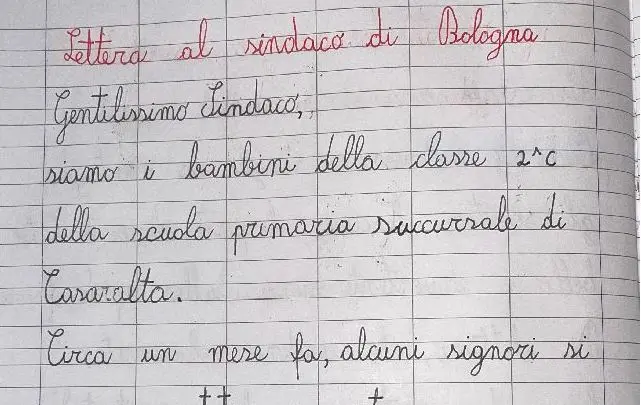 Lettera al sindaco di Bologna
Gentilissimo Sindaco,
siamo i bambini della classe 2^C
della scuola primaria succursale di
Casaralta.
Circa un mese fa, alcuni signori si